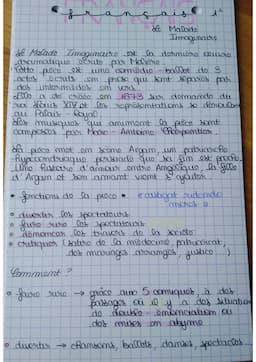 français
Le Malade
Imaginaire
Le Malade Imaginaire est la dernière œuvre
dramatique écrite par Molière.
Cette pièce est une comédie-ballet de 3
actes écrits en prose qui sont séparés par
des intermèdes en vers.
Elle a été créée en 1673 sur demande du
roi Louis XIV et les représentations se déroulent
au Palais-Royal
Les musiques qui animent la pièce sont
composées par Marc-Antoine Charpentier.
La pièce met en scène Argan, un
hypocondriaque persuadé que sa fin est proche.
Une histoire d'amour entre Angélique, la fille
d'Argan et son amant vient s'ajouter.
• fonctions de la pièce • "castigat ridendo
mores"
• divertir les spectateurs
• faire rire les spectateurs
• dénoncer les travers de la société
• critiquer (satire de la médecine, patriarcat,
des mariages arrangés, justice...)
Comment ?
• faire rire → grâce aux 5 comiques, à des
passages où il y a des situations
de double-énonciation ou
des mises en abyme
• divertir → chansons, ballets, danses, spectacles